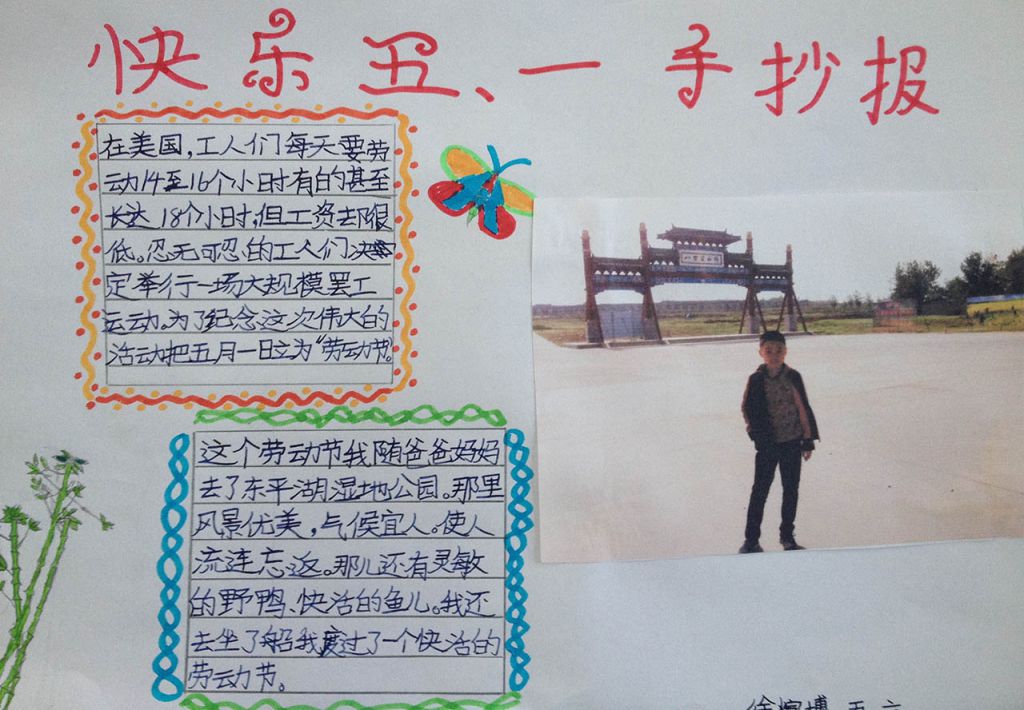 快乐五、一 手抄报
在美国,工人们每天要劳
动14至16个小时有的甚至
长达18个小时,但工资却很
低。忍无可忍的工人们决
定举行一场大规模罢工
运动。为了纪念这次伟大的
活动把五月一日立为“劳动节。
这个劳动节我随爸爸妈妈
去了东平湖湿地公园。那里
风景优美,气候宜人。使人
流连忘返。那儿还有灵敏
的野鸭、快活的鱼儿。我还
去坐了船我度过了一个快活的
劳动节。